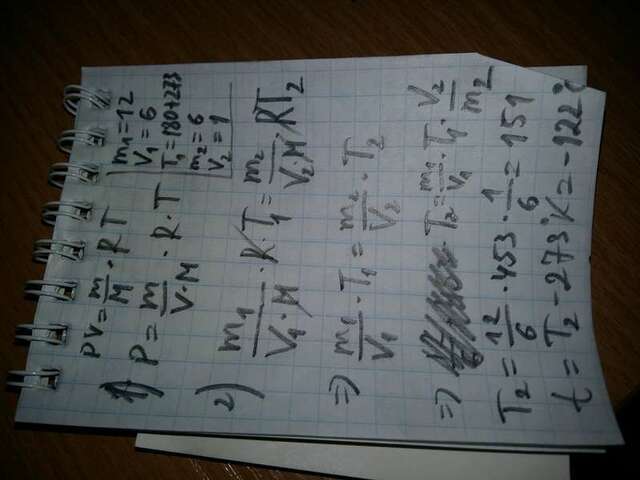 PV = m/M · RT
m₁ = 12
V₁ = 6
T₁ = 180+273
m₂ = 6
V₂ = 1
1) P = m/(V·M) · R · T
2) m₁/(V₁·M) · R · T₁ = m₂/(V₂·M) · RT₂
=> m₁/V₁ · T₁ = m₂/V₂ · T₂
=> · T₂ = m₁/V₁ · T₁ · V₂/m₂
T₂ = 12/6 · 453 · 1/6 = 151
t = T₂ - 273°K = -122°